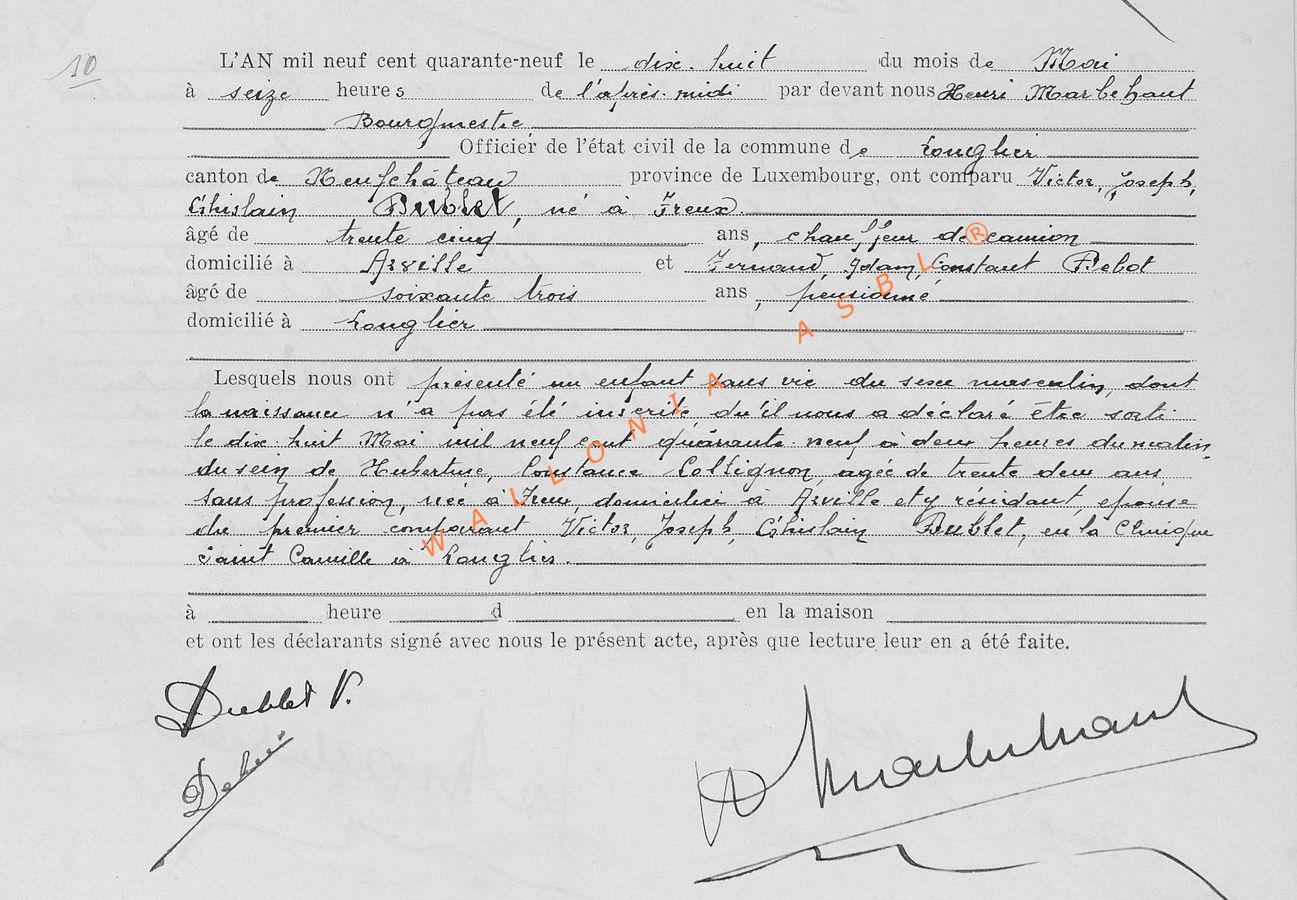 10
L'AN mil neuf cent quarante-neuf le dix-huit du mois de Mai
à seize heures de l'après-midi par devant nous Henri Marbehant
Bourgmestre
Officier de l'état civil de la commune de Longlier
canton de Neufchâteau province de Luxembourg, ont comparu Victor, Joseph,
Ghislain Dublet, né à Freux.
âgé de trente cinq ans, chauffeur de camion
domicilié à Arville et Fernand, Adam, Constant
âgé de soixante trois ans, pensionné
domicilié à Longlier
Lesquels nous ont présenté un enfant sans vie du sexe masculin, dont
la naissance n'a pas été inscrite, qu'il nous a déclaré être sorti
le dix huit Mai mil neuf cent quarante-neuf à deux heures du matin,
du sein de Hubertine, Constance Collignon, agée de trente deux ans,
sans profession, née à Freux, domiciliée à Arville et y résidant, épouse
du premier comparant Victor, Joseph, Ghislain Dublet, en la Clinique
Saint Camille à Longlier.
à heure d en la maison
et ont les déclarants signé avec nous le présent acte, après que lecture leur en a été faite.
Dublet V.
WALLONIA ASBL ®